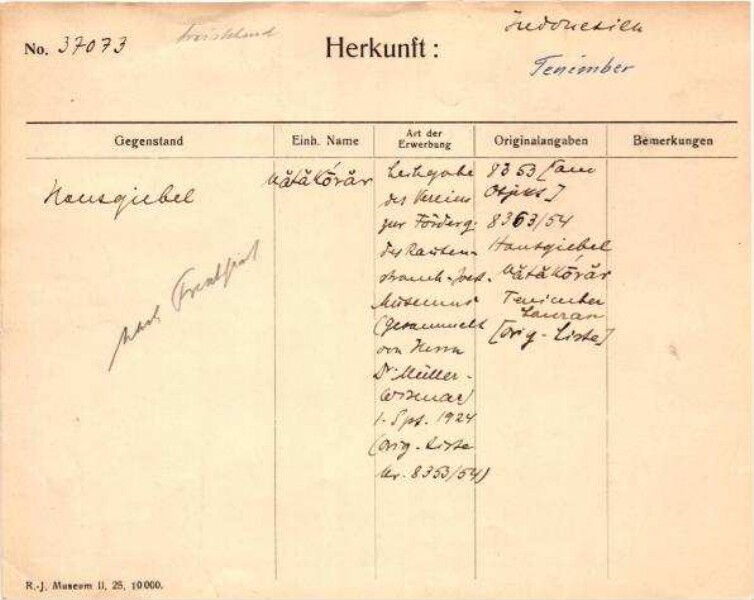 No. 37073
Herkunft:
Indonesien
Tenimber
Gegenstand
Einh. Name
Art der Erwerbung
Originalangaben
Bemerkungen
Hausgiebel
nach Frankfurt
Leihgabe
des Vereins
zur Förderg.
des Rauten-
strauch-Joest-
Museums
(Gesammelt
von Herrn
Dr. Müller-
Wismar)
1. Spt. 1924
(Orig.-Liste
Nr. 8353/54)
8353 [am
Objekt]
8363/54
Hausgiebel
Tenimber
[Orig-Liste]
R.-J. Museum II, 25, 10000.